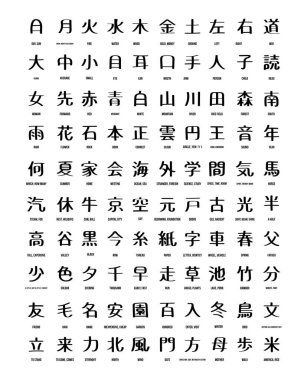 日 月 火 水 木 金 土 左 右 道
THE SUN FIRE WATER WOOD GOLD, MONEY GROUND LEFT RIGHT WAY
大 中 小 目 耳 口 手 人 子 読
LARGE AVERAGE SMALL EYE EAR MOUTH ARM PERSON CHILD READ
女 先 赤 青 白 山 川 田 森 南
WOMAN RED WHITE MOUNTAIN RIVER RICE FIELD FOREST SOUTH
雨 花 石 本 正 雲 円 王 音 年
RAIN FLOWER ROCK BOOK CLOUD KING SOUND YEAR
何 夏 家 会 海 外 学 間 気 馬
SUMMER HOME MEETING OCEAN, SEA SCIENCE HORSE
汽 休 牛 京 空 元 戸 古 光 半
STEAM, FOG CAPITAL CITY SKY DOOR HALF
高 谷 黒 今 糸 紙 字 車 春 父
VALLEY BLACK NOW THREAD PAPER SPRING FATHER
少 色 夕 千 早 走 草 池 竹 分
COLOUR EVENING THOUSAND RUN GRASS, PLANTS LAKE, POND BAMBOO
友 毛 名 安 園 百 入 冬 鳥 文
FRIEND HAIR NAME INEXPENSIVE, CHEAP GARDEN HUNDRED ENTER, VISIT WINTER BIRD
立 来 力 北 風 門 方 母 歩 米
TO STAND STRENGTH NORTH WIND GATE MOTHER WALK AMERICA, RICE